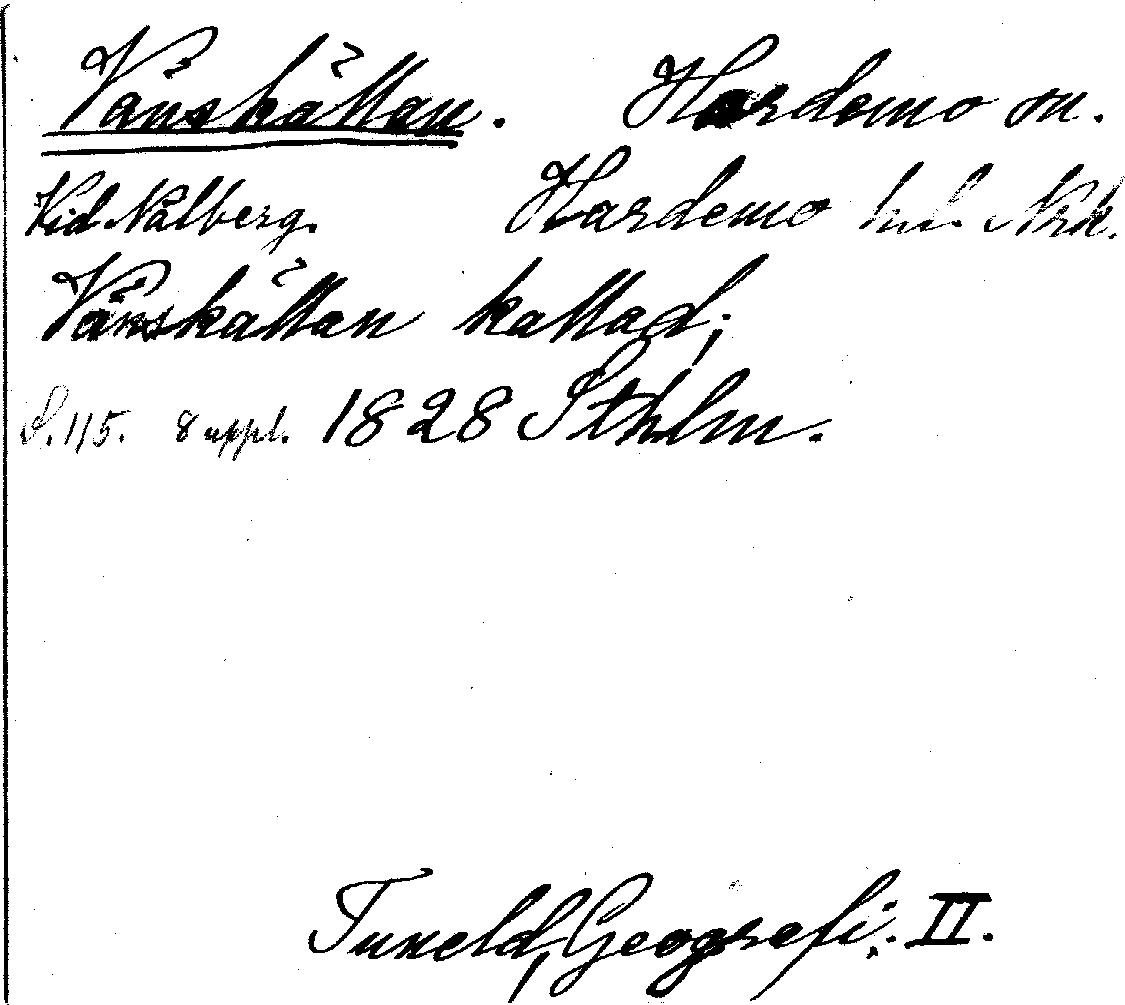 Vänskättan. Hardemo sn.
Vid Nålberg. Hardemo hd. Nrk.
Vänskättan kallad;
S. 115. 8 uppl. 1828 Sthlm.
Tuneld, Geografi: II.